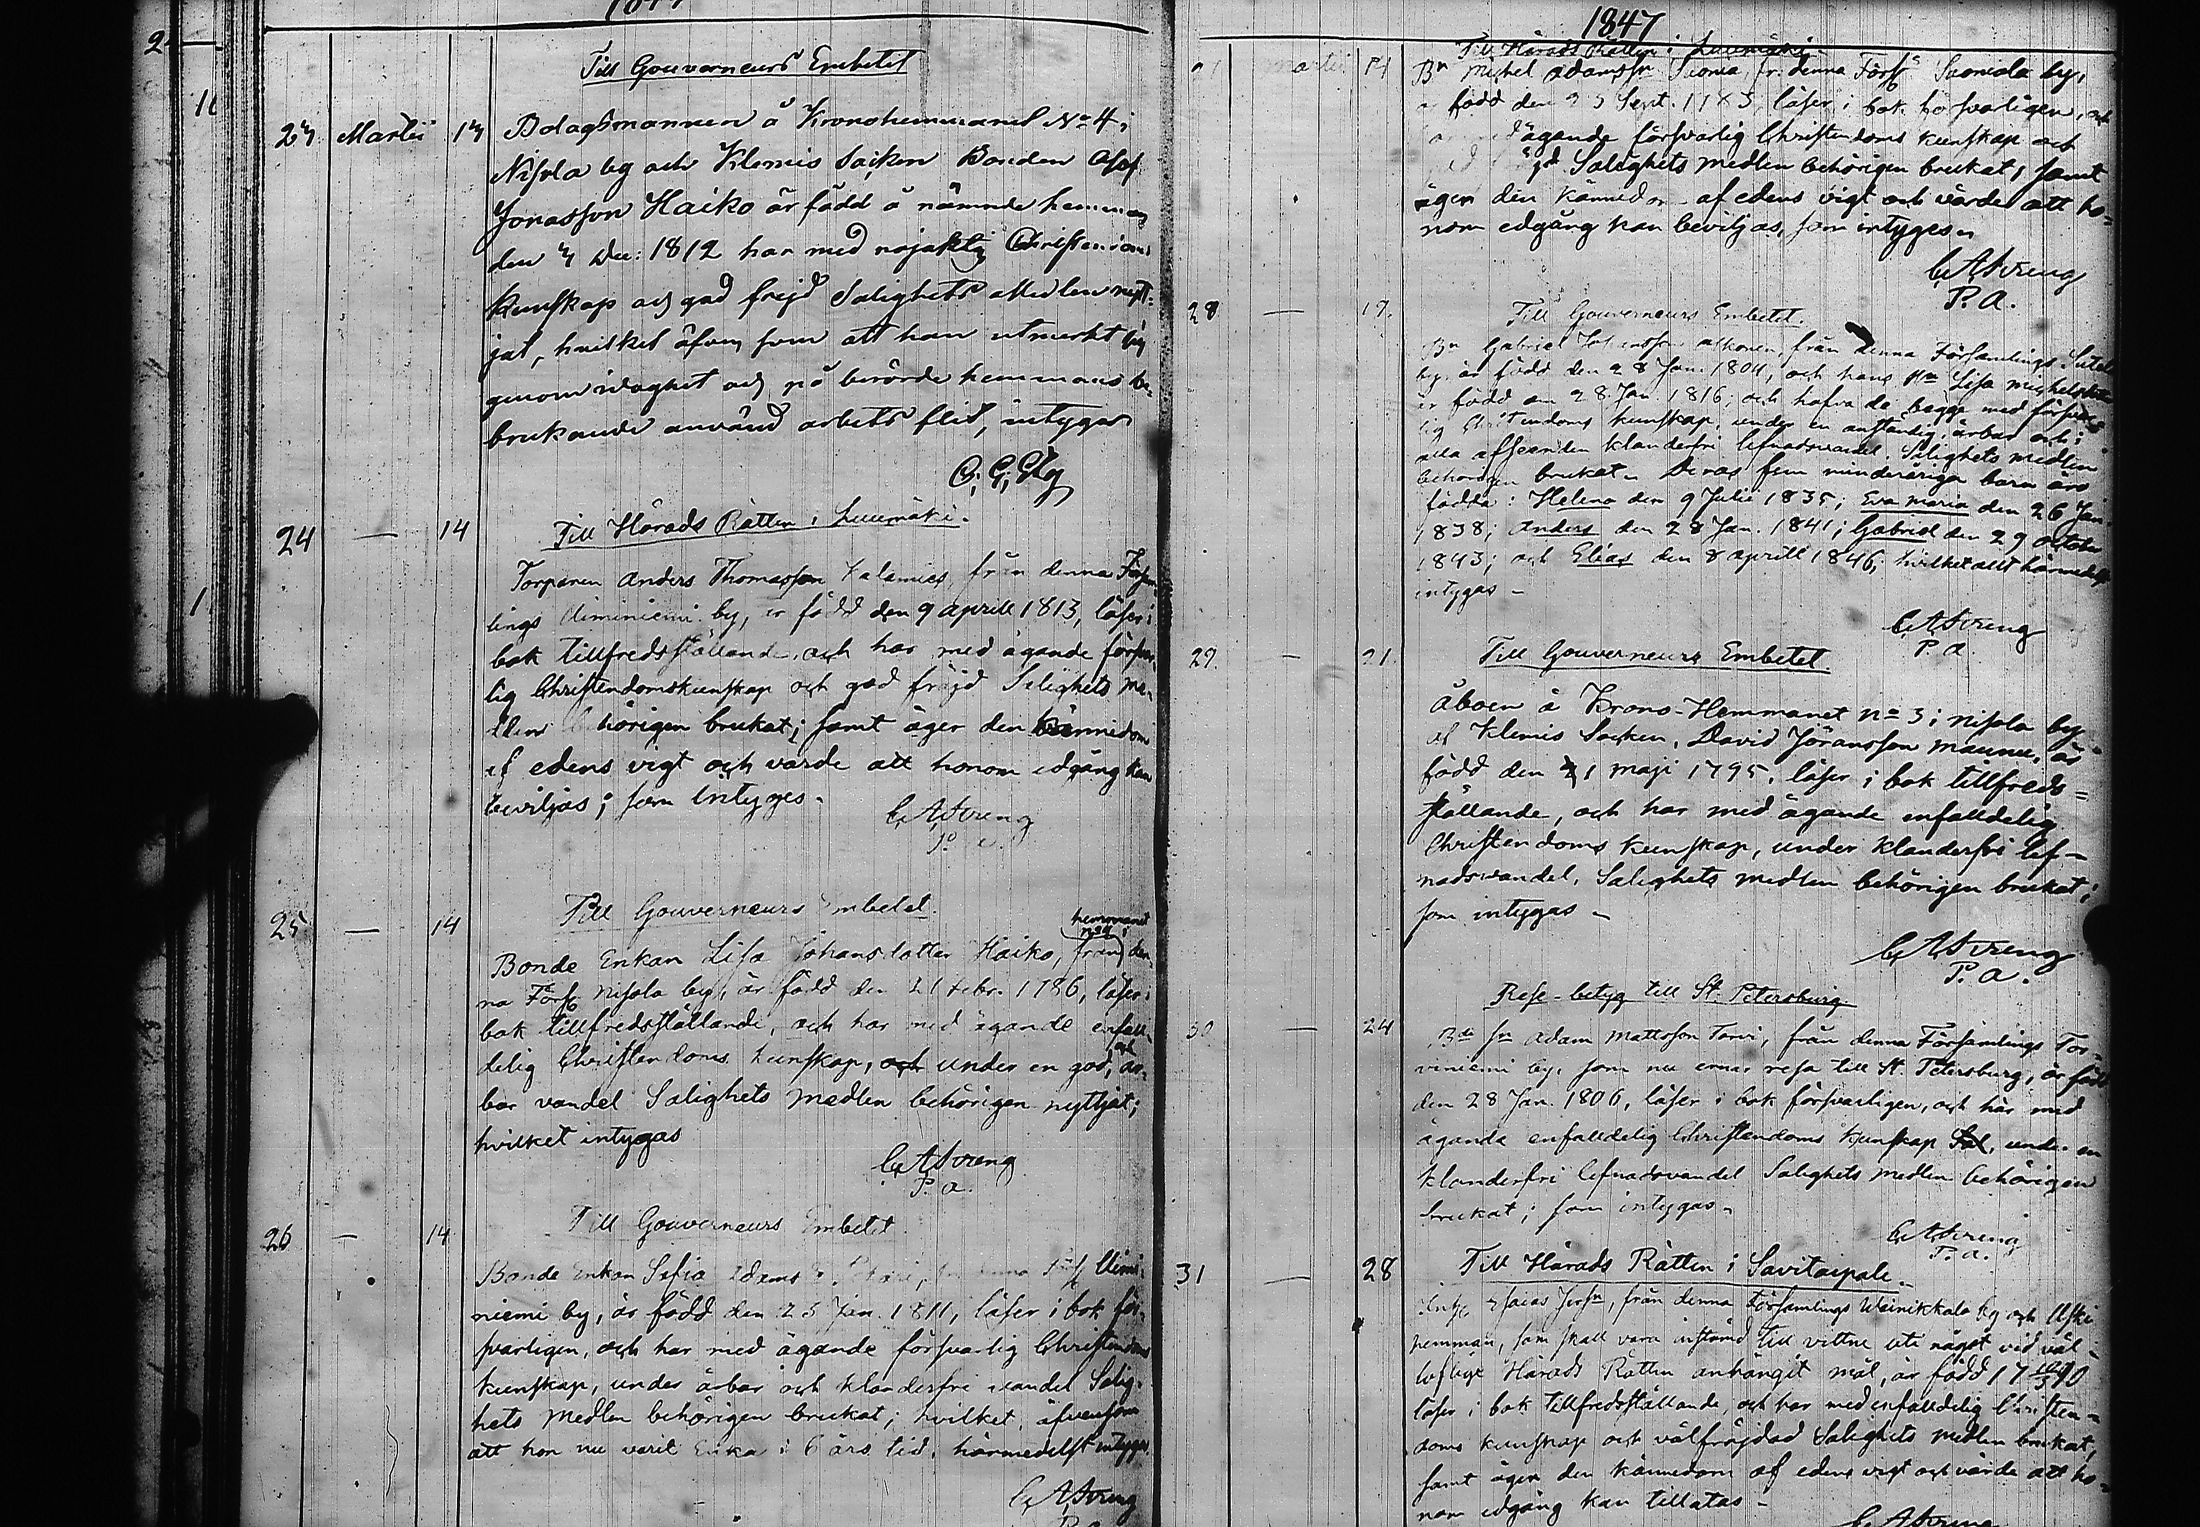 Till Gouverneurs Embetet
23 Martii 13 Bolagsmannen å Kronohemmanet No 4 i
Nisola by och Klemis Socken Bonden
Jonasson Haiko är född å nämnde hemman
den 3 Dec: 1812 har med nöjaktig Christendoms
kunskap och god frejd Salighets Medlen nytt-
jat, hvilket äfven som att han utmärkt sig
genom idoghet och på berörde hemmans be-
brukande använd arbets flit, intygar
24 — 14 Till Härads Rätten i Luumäki.
Torparen Anders Thomasson från denna Församl-
lings by, är född den 9 aprill 1813, läser i
bok tillfredsställande, och har med ägande försvar-
lig Christendomskunskap och god fräjd Salighets me-
dlen behörigen brukat; samt äger den kännedom
af edens vigt och värde att honom edgång kan
beviljas; som intygas.
C. A. Streng
P. a.
Till Gouverneurs Embetet.
25 — 14 Bonde Enkan Lisa Johansdotter Haiko, från den
hemmanet
na Förs. Nisola by, är född den 21 Febr. 1786, läser i
bok tillfredsställande, och har med ägande enfall-
delig Christendoms kunskap, och under en god, och är-
bar vandel Salighets Medlen behörigen nyttjat;
hvilket intygas
C. A. Streng
P. a.
Till Gouverneurs Embetet
26 — 14 Bonde Enkan Sofia Adams
niemi by, är född den 25 Jan. 1811, läser i bok för-
svarligen, och har med ägande försvarlig Christendoms
kunskap, under ärbar och klanderfri vandel Salig-
hets Medlen behörigen brukat; hvilket, äfvensom
att hon nu varit Enka i 6 års tid, härmedelst intygas
C. A. Streng
1847
Till Härads Rätten i Luumäki
14 Bn Michel Adamsson Suomela by,
född den Sept. läser i bok försvarligen, och
ägande försvarlig Christendoms kunskap och
Salighets Medlen behörigen brukat, samt
äger den kännedom af edens vigt och värde att ho-
nom edgång kan beviljas, som intygas
C. A. Streng
P. a.
28 — 17. Till Gouverneurs Embetet.
Bn Gabriel från denna Församlings
by, är född den 28 Jan. 1804, och hans Hu Lisa Michelsdotter
är född den 28 Jan 1816; och hafva de begge med försvar-
lig Christendoms kunskap, under en anständig, ärbar och i
alla afseenden klanderfri lefnadsvandel, Salighets medlen
behörigen brukat. Deras fem minderåriga barn äro
födda: Helena den 9 Julii 1835; Eva Maria den 26 Jan.
1838; Anders den 28 Jan. 1841; Gabriel den 29 october
1843; och Elias den 8 aprill 1846; hvilket allt härmedelst
intygas —
C. A. Streng
P. a.
29. — 21. Till Gouverneurs Embetet.
Åboen å Krono-Hemmanet No 3 i Nisola by
af Klemis Socken, David Jöransson Maunu, är
född den 1 Maji 1795, läser i bok tillfreds-
ställande, och har med ägande enfalldelig
Christendoms kunskap, under klanderfri lef-
nadsvandel, Salighets medlen behörigen brukat;
som intygas —
C. A. Streng
P. a.
Rese-betyg till St. Petersburg
30 — 24 Bde sn Adam Mattsson från denna Församlings Tor-
viniemi by, som nu ernar resa till St. Petersburg, är född
den 28 Jan. 1806, läser i bok försvarligen, och har med
äganda enfalldelig Christendoms kunskap under en
klanderfri lefnadsvandel Salighets medlen behörigen
brukat; som intygas.
C. A. Streng
P. a.
31 — 28 Till Härads Rätten i Savitaipale.
från denna Församlings Wainikkala by och Uski
hemman, som skall vara instämd till vittne uti något vid väl-
loflige Härads Rätten anhängit mål, är född
läser i bok tillfredsställande, och har med enfalldelig Christen-
doms kunskap och välfräjdad Salighets medlen brukat,
samt äger den kännedom af edens vigt och värde att ho-
nom edgång kan tillåtas —
C. A. Streng